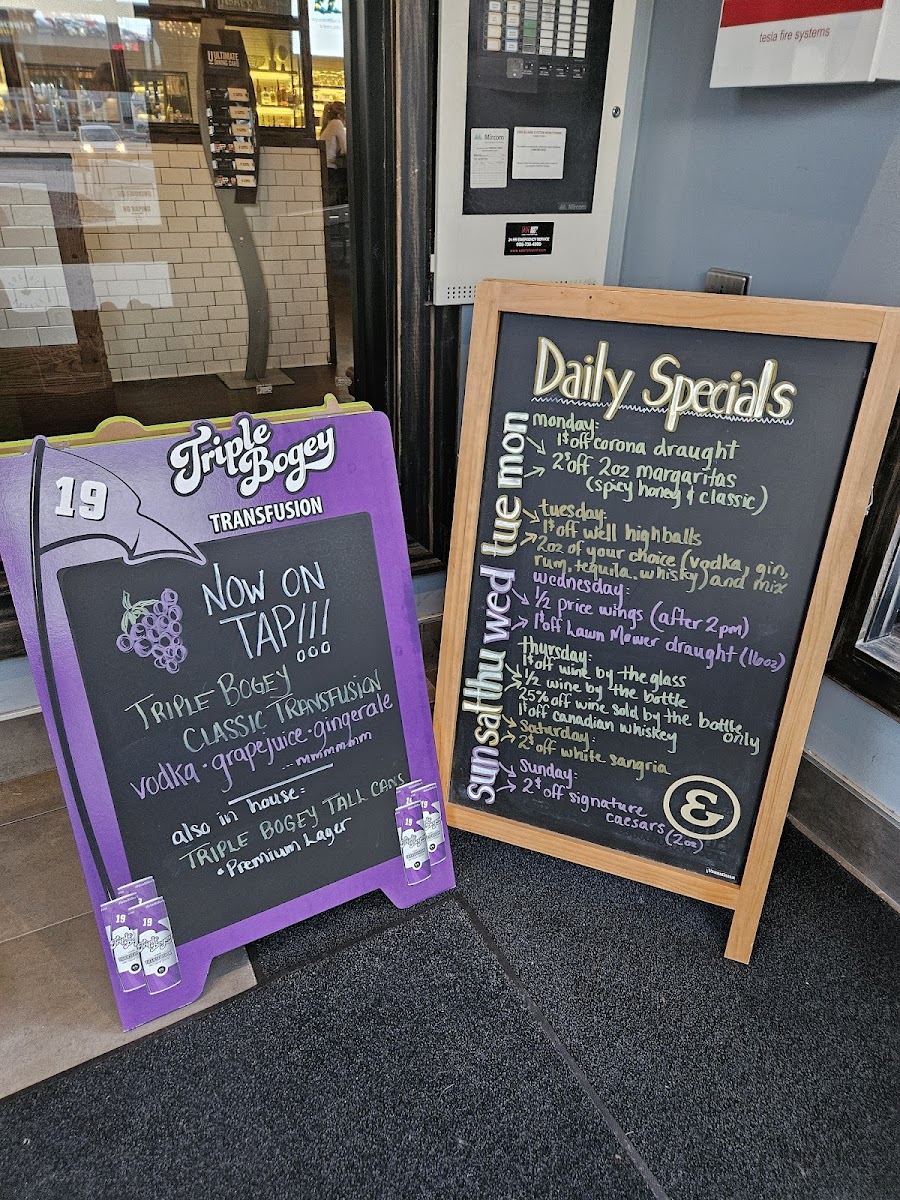 ULTIMATE
DINING CARD
NO SMOKING
NO VAPING
Mircom
Mircom
24 HR EMERGENCY SERVICE
tesla fire systems
Triple
Bogey
TRANSFUSION
19
NOW ON
TAP!!!
TRIPLE BOGEY
CLASSIC TRANSFUSION
vodka · grapejuice · gingerale
...mmmmmm
also in house:
TRIPLE BOGEY TALL CANS
• Premium Lager
19
19
19
19
Daily Specials
sun sat thu wed tue mon
monday:
1$ off corona draught
2$ off 2oz margaritas
(spicy honey & classic)
tuesday:
1$ off well highballs
2oz of your choice (vodka, gin,
rum, tequila, whisky) and mix
wednesday:
1/2 price wings (after 2pm)
1$ off Lawn Mower draught (16oz)
thursday:
1$ off wine by the glass
1/2 wine by the bottle
25% off wine sold by the bottle
only
1$ off canadian whiskey
saturday:
2$ off white sangria
Sunday:
2$ off signature
caesars (2oz)
&